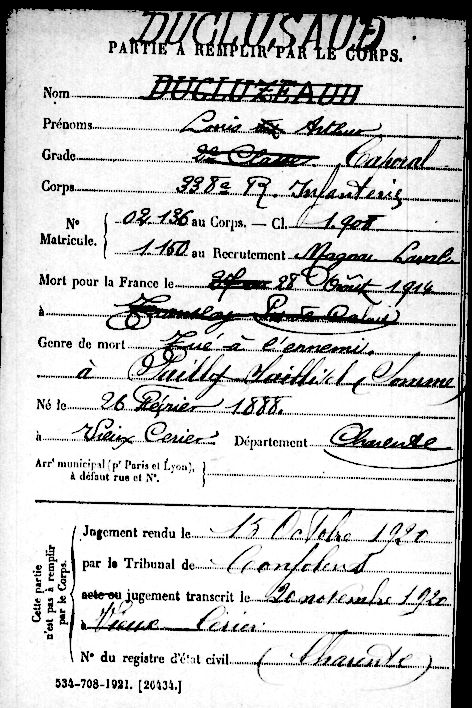 DUCLUSAUD
PARTIE À REMPLIR PAR LE CORPS.
Nom DUCLUZEAUD
Prénoms Louis Arthur
Grade 2e Classe Caporal
Corps 338e R. Infanterie
N° Matricule. 02.136 au Corps. — Cl. 1.908
1.160 au Recrutement Magnac Laval
Mort pour la France le 28 Août 1914
à
Genre de mort Tué à l'ennemi.
à Sailly Saillisel (Somme)
Né le 26 Février 1888.
à Vieux Cerier Département Charente
Arrt municipal (pr Paris et Lyon), à défaut rue et N°.
Cette partie n'est pas à remplir par le Corps.
Jugement rendu le 13 Octobre 1920
par le Tribunal de Confolens
acte ou jugement transcrit le 20 novembre 1920
à Vieux Cérier
N° du registre d'état civil (Charente)
534-708-1921. [26434.]